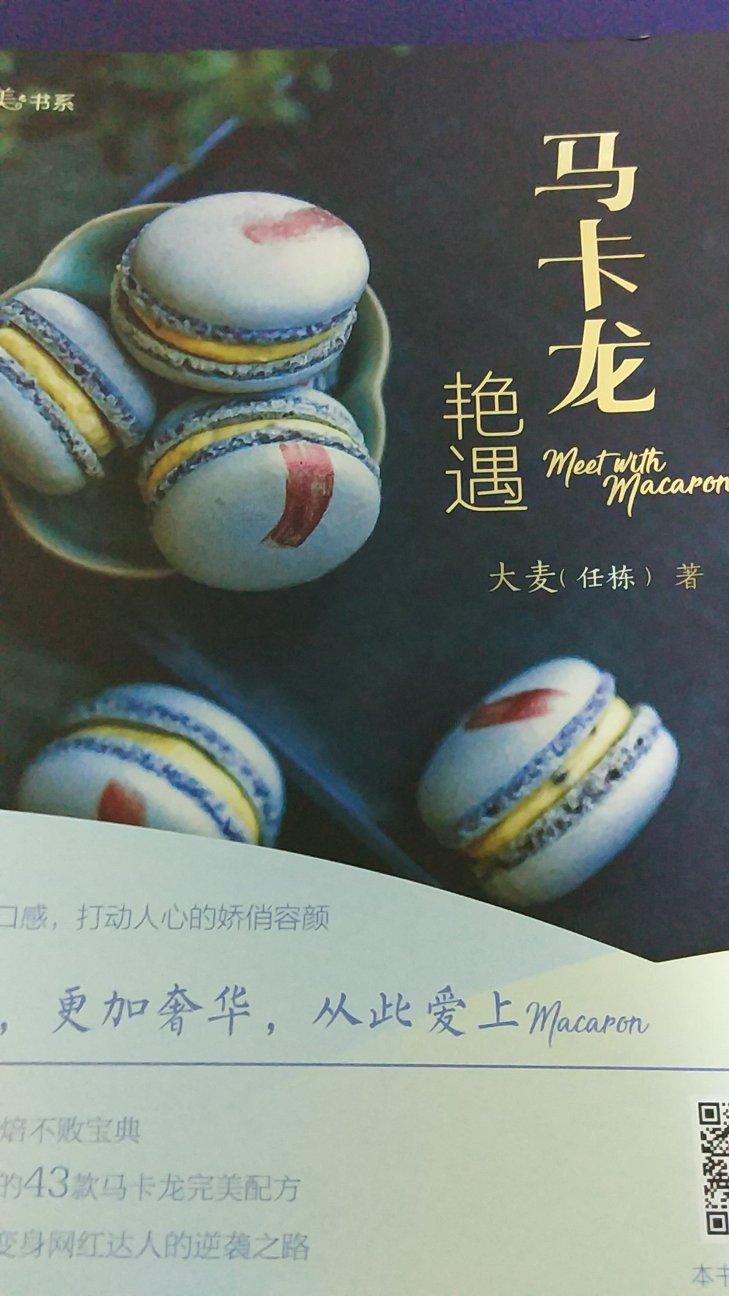 美·书系
马卡龙
艳遇
Meet with
Macaron
大麦(任栋) 著
口感，打动人心的娇俏容颜
，更加奢华，从此爱上Macaron
焙不败宝典
的43款马卡龙完美配方
变身网红达人的逆袭之路
本书